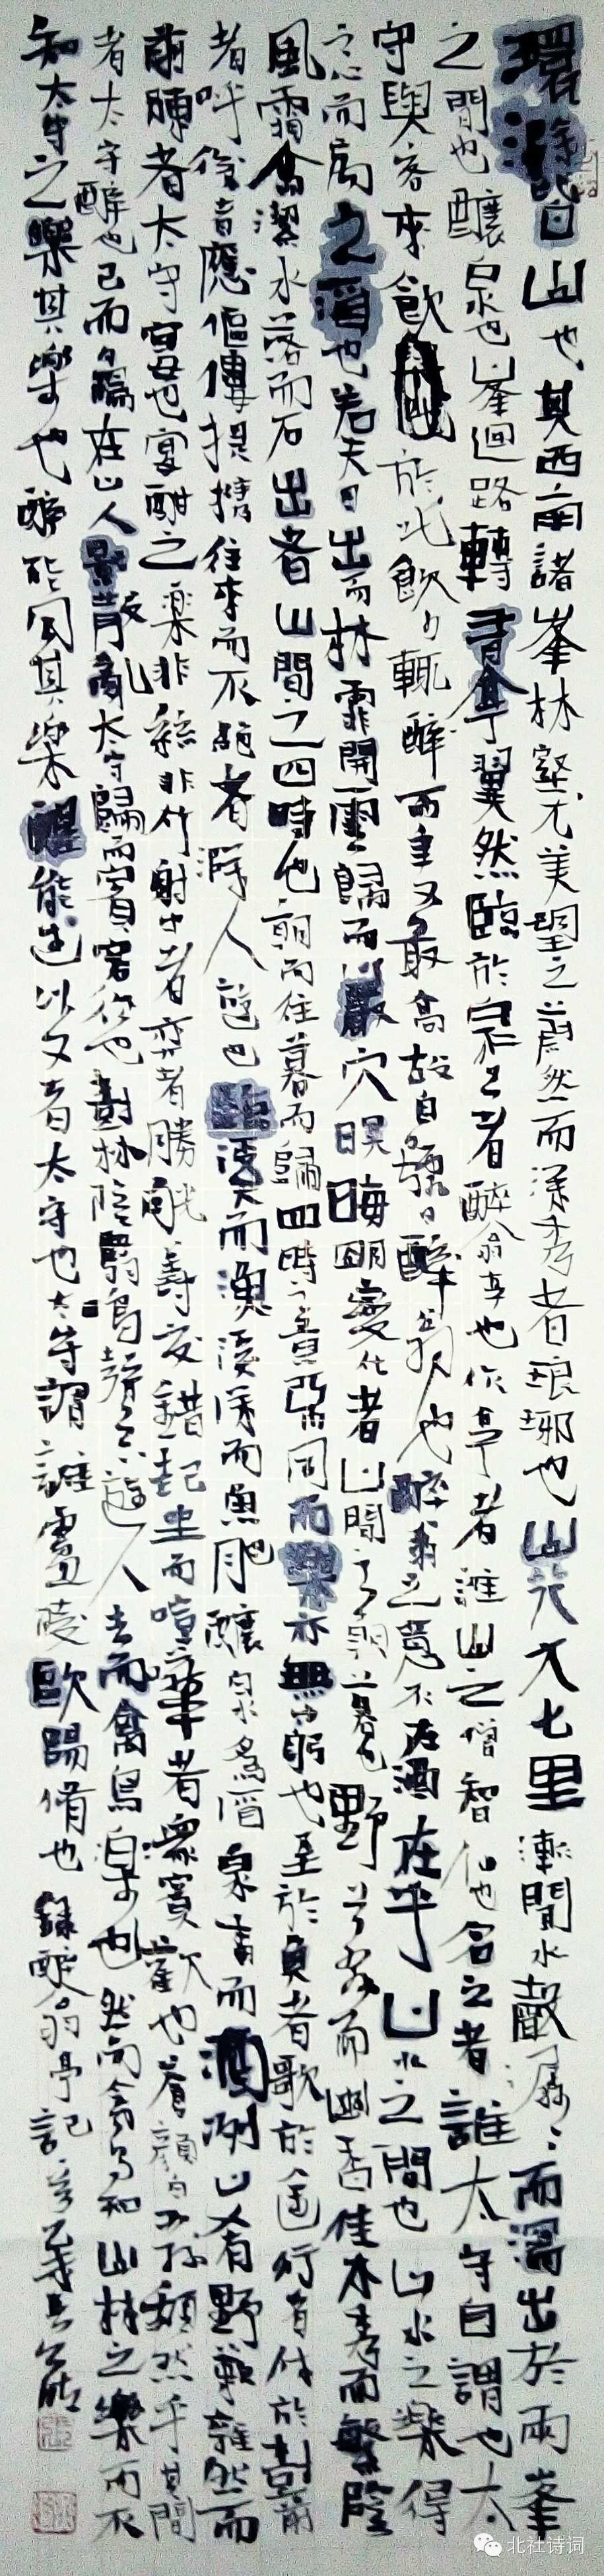 環滁皆山也其西南諸峯林壑尤美望之蔚然而深秀者琅琊也山行六七里漸聞水聲潺潺而瀉出於兩峯
之間也釀泉也峯迴路轉有亭翼然臨於泉上者醉翁亭也作亭者誰山之僧智仙也名之者誰太守自謂也太
守與客來飲於此飲少輒醉而年又最高故自號曰醉翁也醉翁之意不在酒在乎山水之間也山水之樂得
之酒也若夫日出而林霏開雲歸而巖穴暝晦明變化者山間之朝暮也野芳發而幽香佳木秀而繁陰
風霜高潔水落而石出者山間之四時也朝而往暮而歸四時之景不同而樂亦無窮也至於負者歌於途行者休於樹前
者呼後者應傴僂提攜往來而不絕者滁人遊也臨溪而漁溪深而魚肥釀泉為酒泉香而酒洌山肴野蔌雜然而
前陳者太守宴也宴酣之樂非絲非竹射中者弈者勝觥籌交錯起坐而諠譁者衆賓歡也蒼顏白髮頹然乎其間
者太守醉也已而夕陽在山人影散亂太守歸而賓客從也樹林陰翳鳴聲上下遊人去而禽鳥樂也然而禽鳥知山林之樂而不
知太守之樂其樂也醉能同其樂醒能述以文者太守也太守謂誰廬陵歐陽脩也錄醉翁亭記
北社诗词